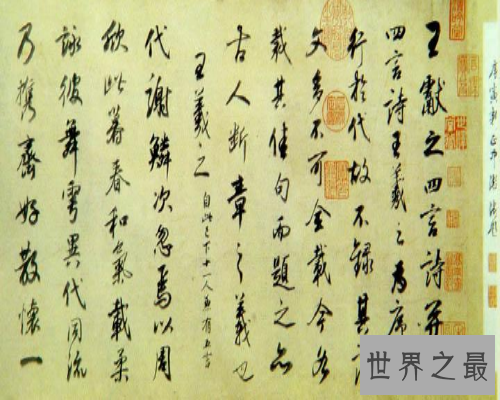 王獻之四言詩并
四言詩王羲之為序
行於代故不錄其詩
文多不可全載今各
裁其佳句而題之亦
古人斷章之義也
王羲之 自此已下十一人並有五言
代謝鱗次忽焉以周
欣此暮春和氣載柔
詠彼舞雩異代同流
乃攜齊好散懷一
世界之最